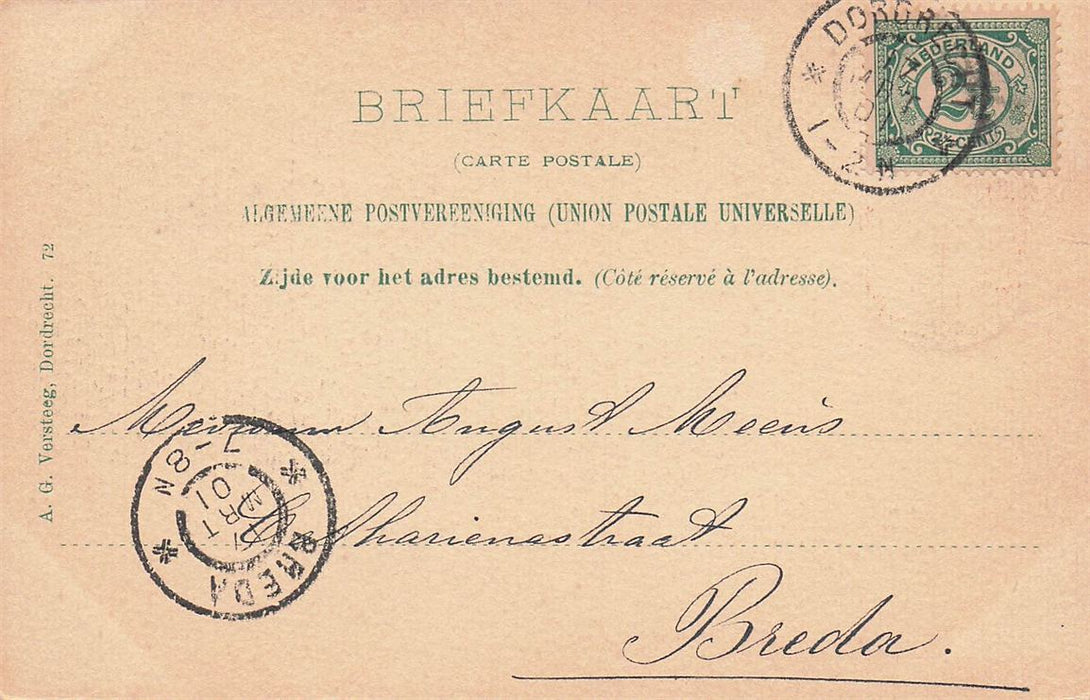 BRIEFKAART
(CARTE POSTALE)
ALGEMEENE POSTVEREENIGING (UNION POSTALE UNIVERSELLE)
Zijde voor het adres bestemd. (Côté réservé à l'adresse).
NEDERLAND
2½
2½ CENT
DORDRECHT
1-2 N
A. G. Versteeg, Dordrecht. 72
August Meeüs
Breda.
BREDA
MRT
01
7-8N